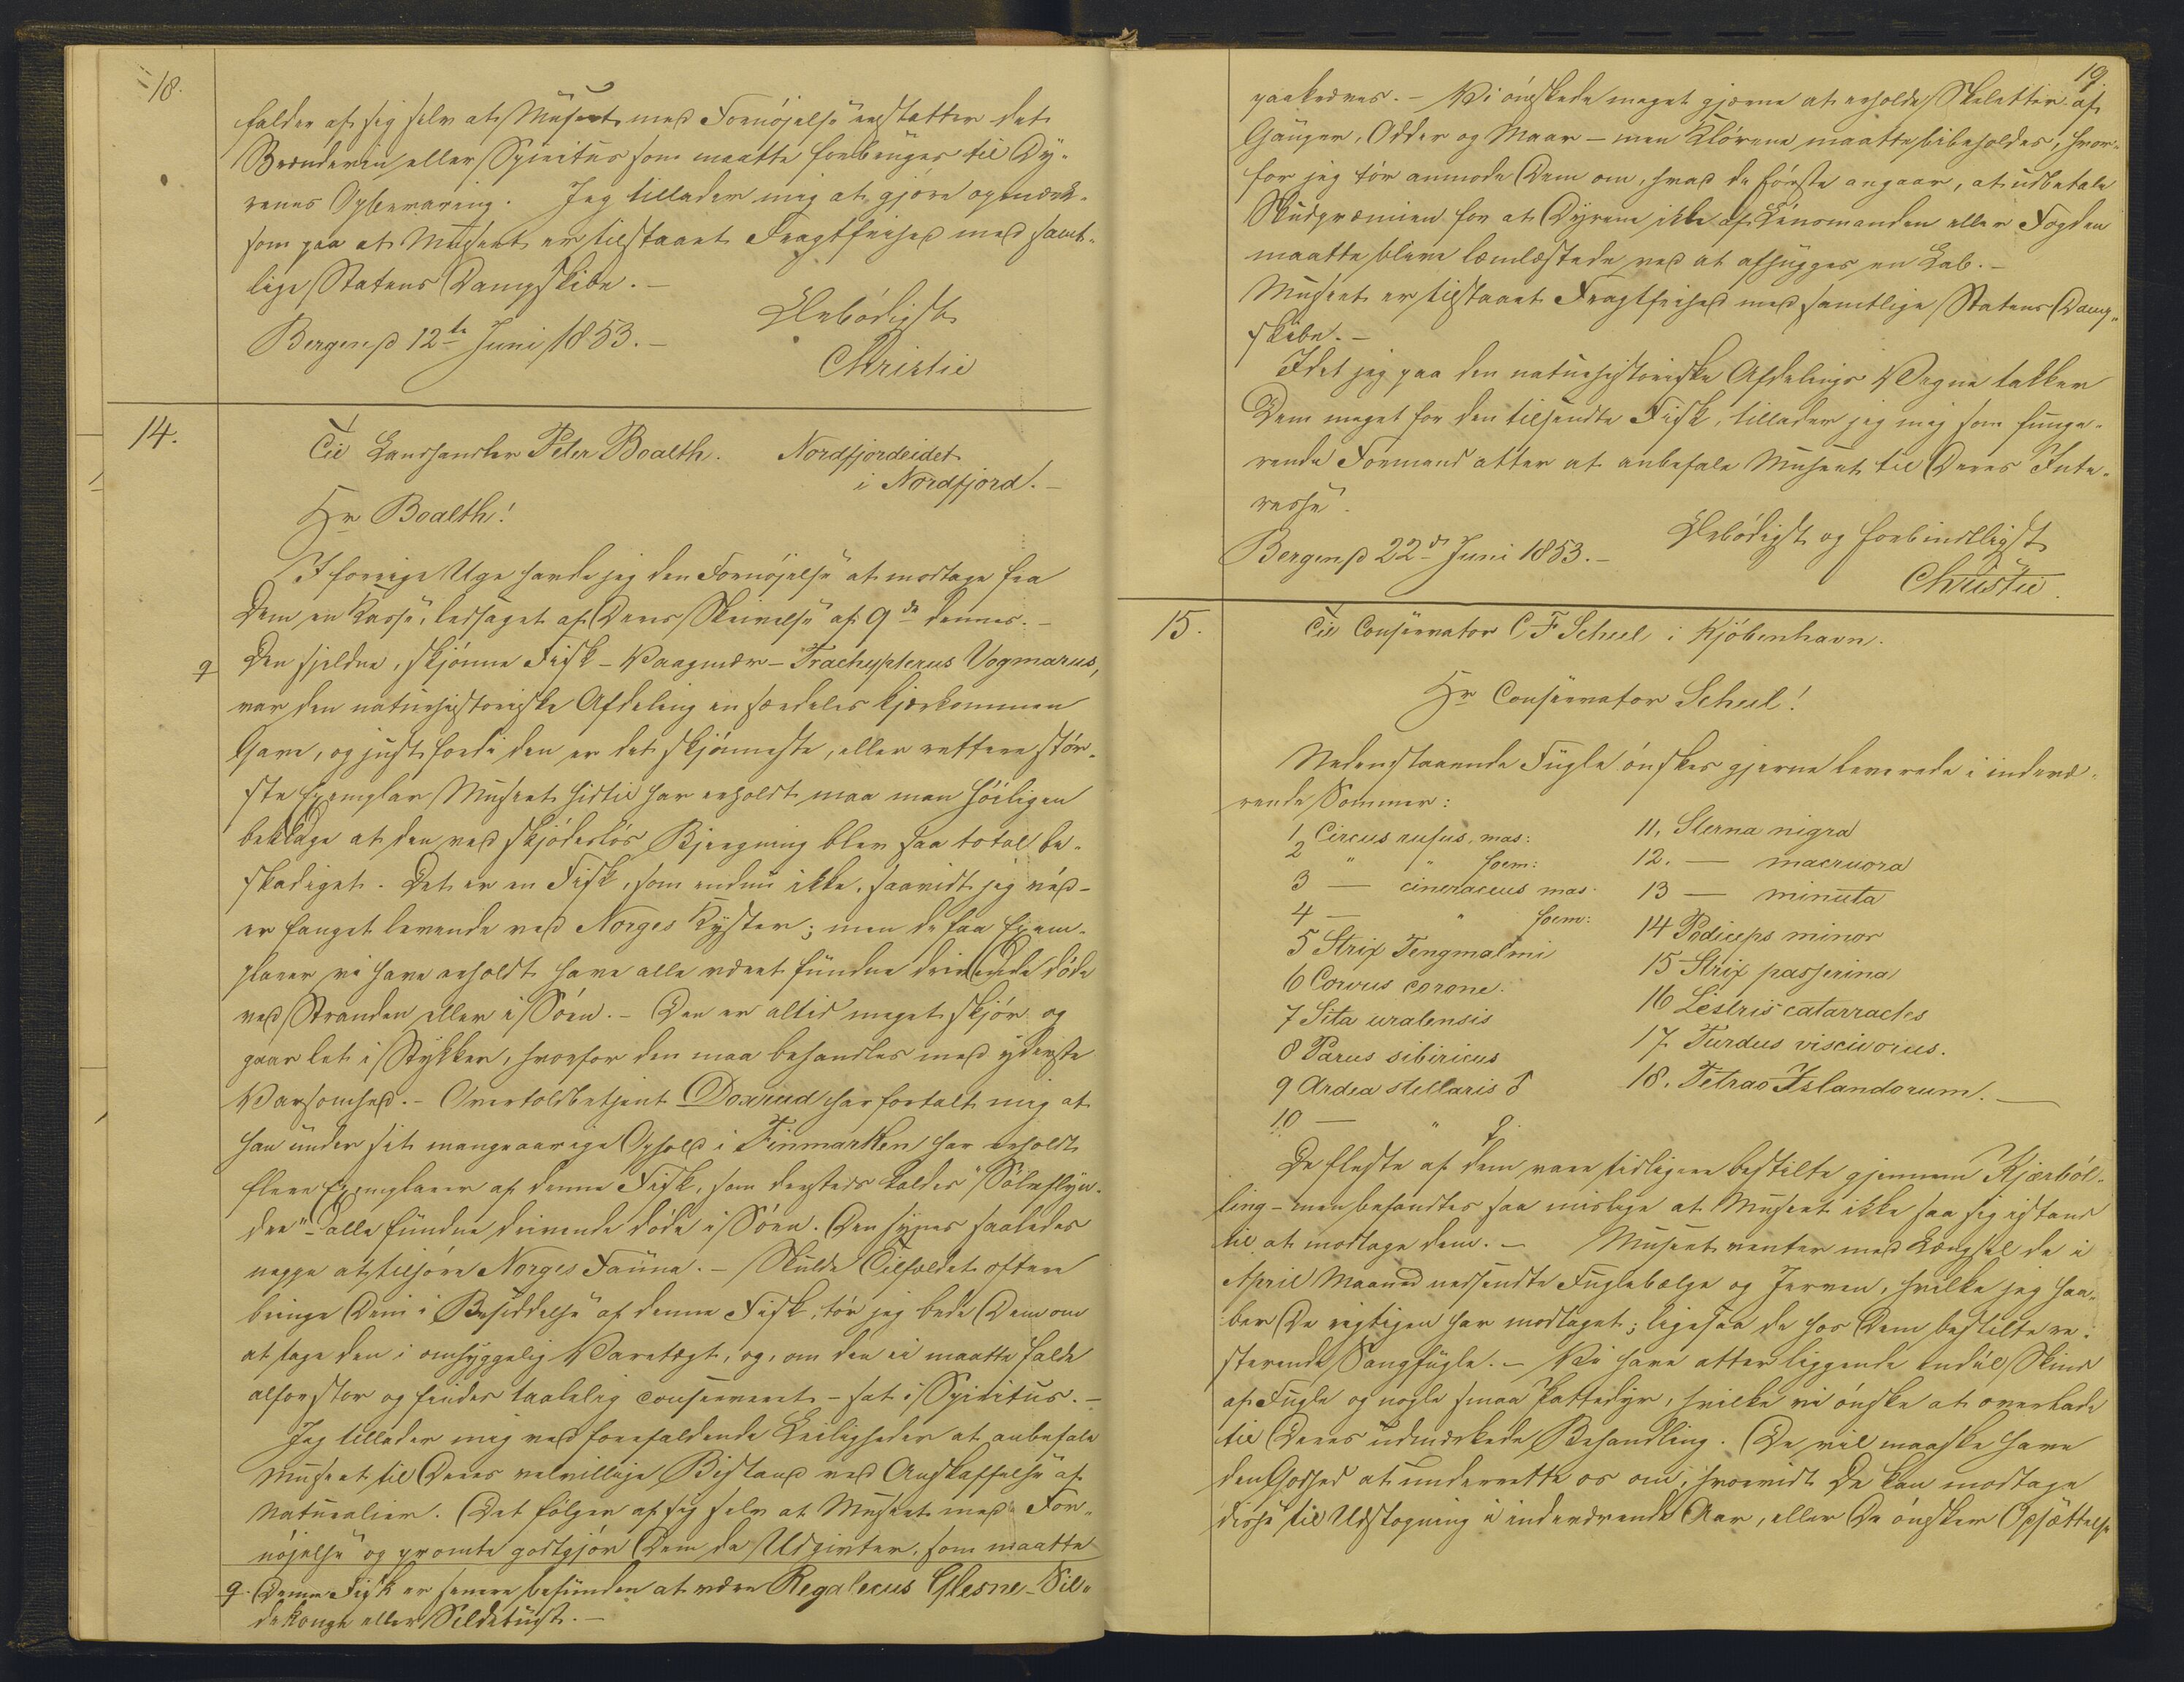 18.
falder af sig selv at Museet med Fornöjelse erstatter det
Brændeviin eller Spiritus som maatte forbruges til Dy-
renes Opbevaring. Jeg tillader mig at gjöre opmærk-
som paa at Museet er tilstaaet Fragtfrihed med samt-
lige Statens Dampskibe. -
Ærbödigst
Bergen d 12te Juni 1853. -
Christie
14.
Til Landhandler Peter Boalth. Nordfjordeidet
i Nordfjord. -
Hr Boalth!
I forrige Uge havde jeg den Fornöjelse at modtage fra
Dem en Kasse, ledsaget af Deres Skrivelse af 9de dennes. -
Den sjeldne, skjönne Fisk - Vaagmær - Trachypterus Vogmarus,
var den naturhistoriske Afdeling en særdeles kjærkommen
Gave, og just fordi den er det skjönneste, eller rettere stör-
ste Exemplar Museet hidtil har erholdt maa man höiligen
beklage at den ved skjödeslös Bjergning blev saa total be-
skadiget. Det er en Fisk, som endnu ikke, saavidt jeg véd -
er fanget levende ved Norges Kyster; men de faa Exem-
plarer vi have erholdt have alle været fundne drivende döde
ved Stranden eller i Söen. - Den er altid meget skjör og
gaar let i Stykker, hvorfor den maa behandles med yderste
Varsomhed. - Overtoldbetjent Doxrud har fortalt mig at
han under sit mangeaarige Ophold i Finmarken har erholdt
flere Exemplarer af denne Fisk, som dersteds kaldes "Sölvflyn-
dre" - alle fundne drivende döde i Söen. Den synes saaledes
negge at tilhöre Norges Fauna. - Skulde Tilfældet oftere
bringe Dem i Besiddelse af denne Fisk, tör jeg bede Dem om
at tage den i omhyggelig Varetægt, og, om den ei maatte falde
alforstor og findes taalelig conserveret - sat i Spiritus. -
Jeg tillader mig ved forefaldende Leiligheder at anbefale
Museet til Deres velvillige Bistand ved Anskaffelse af
Naturalier. Det fölger af sig selv at Museet med For-
nöjelse og promte godtgjör Dem de Udgivter, som maatte
Denne Fisk er senere befunden at være Regalecus Glesne - Sil-
dekonge eller Sildetust. -
19.
paakræves. - Vi önskede meget gjerne at erholde Skeletter af
Gauper, Odder og Maar - men Klörene maatte bibeholdes, hvor-
for jeg tör anmode Dem om, hvad de förste angaar, at udbetale
Skudpræmien for at Dyrene ikke af Lénsmanden eller Fogden
maatte bleve læmlæstede ved at afhugges en Lab. -
Museet er tilstaaet Fragtfrihed med samtlige Statens Damp-
skibe. -
Idet jeg paa den naturhistoriske Afdelings Vegne takker
Dem meget for den tilsendte Fisk, tillader jeg mig som funge-
rende Formand atter at anbefale Museet til Deres Inte-
resse.
Ærbödigst og forbindtligst
Bergen d 22de Juni 1853. -
Christie.
15.
Til Conservator C F Scheel i Kjöbenhavn.
Hr Conservator Scheel!
Nedenstaaende Fugle önskes gjerne leverede i indevæ-
rende Sommer:
1, Circus rufus, mas:
2 " " foem:
3 — cineraceus mas.
4 — " foem:
5 Strix Tengmalmi
6 Corvus corone.
7 Sita uralensis
8 Parus sibiricus
9 Ardea stellaris ♂
10 — " ♀.
11, Sterna nigra
12. — macruora
13 — minuta
14 Podiceps minor
15 Strix passerina
16 Lestris catarractes
17. Turdus viscivorus.
18. Tetrao Islandorum. —
De fleste af dem vare tidligere bestilte gjennem Kjærböl-
ling - men befandtes saa mislige at Museet ikke saa sig istand
til at modtage dem. - Museet venter med Længsel de i
April Maaned nedsendte Fuglebælge og Jerven, hvilke jeg haa-
ber De rigtigen har modtaget; ligesaa de hos Dem bestilte re-
sterende Sangfugle. - Vi have atter liggende endeel Skind
af Fugle og nogle smaa Pattedyr, hvilke vi önske at overlade
til Deres udmærkede Behandling. De vil maaske have
den Godhed at underrette os om, hvorvidt De kan modtage
disse til Udstopning i indeværende Aar, eller De önsker Opsættelse